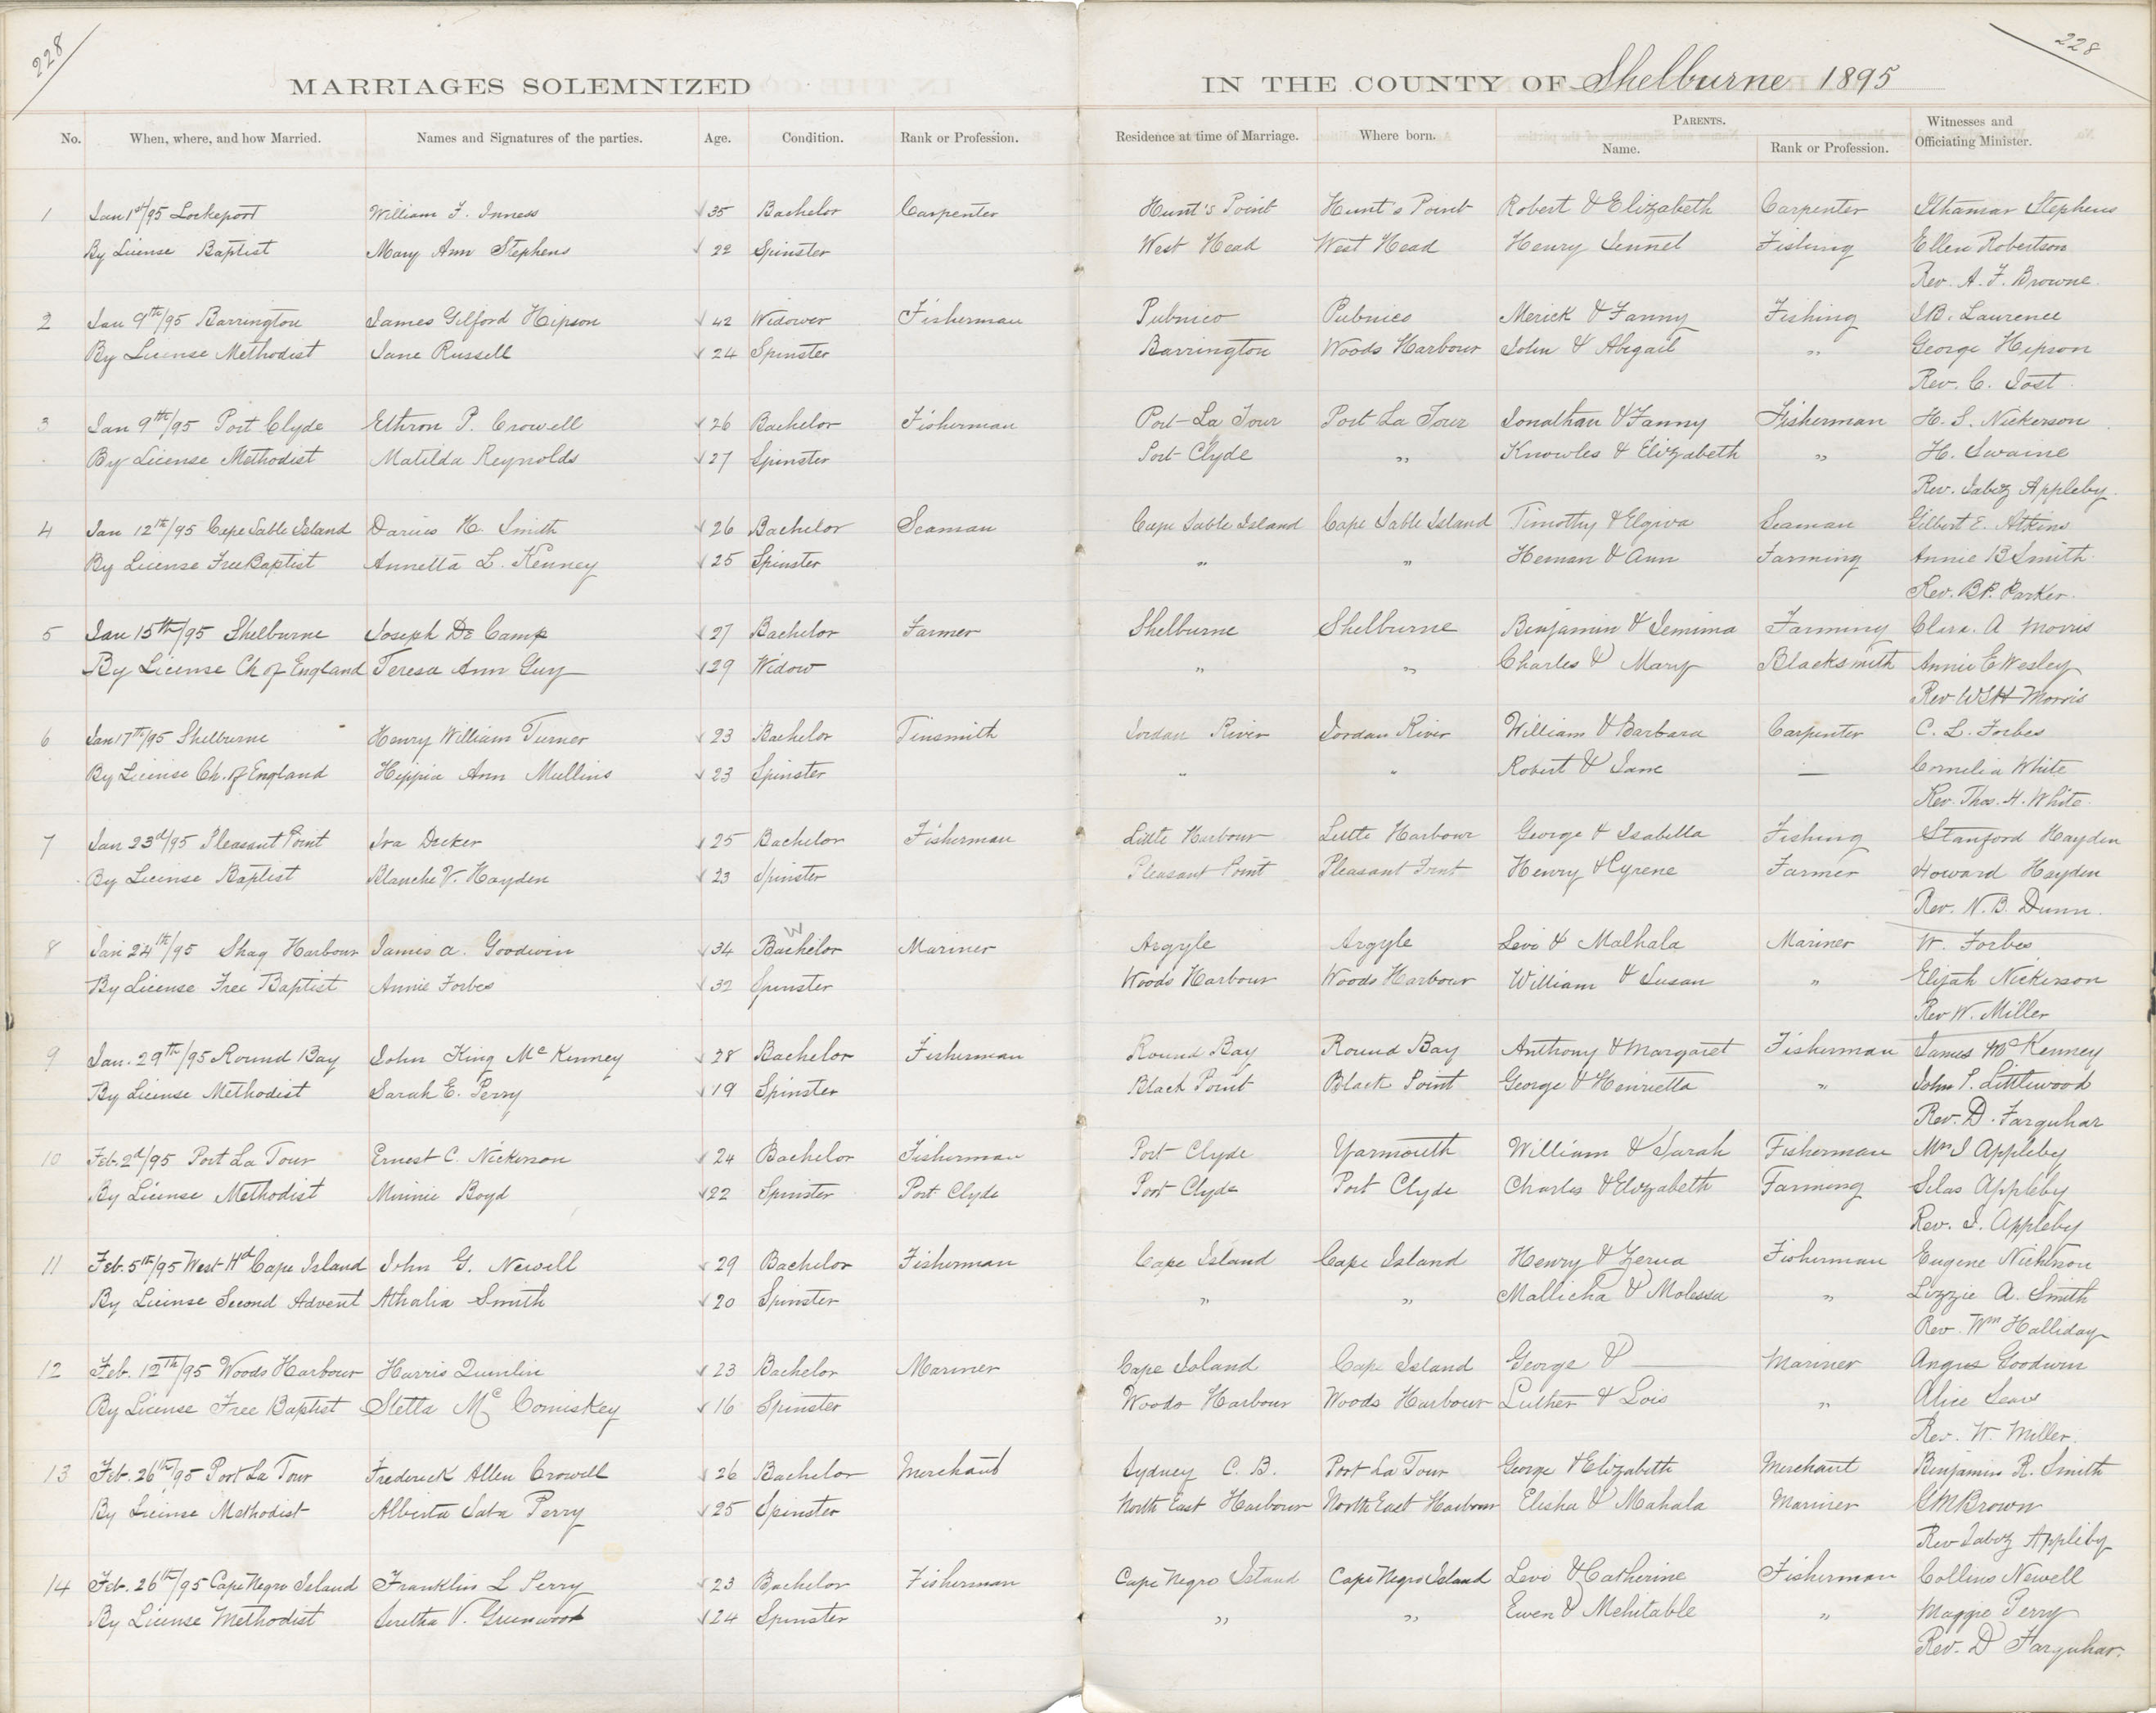 228
228
MARRIAGES SOLEMNIZED IN THE COUNTY OF Shelburne 1895
No. When, where, and how Married. Names and Signatures of the parties. Age. Condition. Rank or Profession. Residence at time of Marriage. Where born. PARENTS. Name. Rank or Profession. Witnesses and Officiating Minister.
1 Jan 1st/95 Lockeport William F. Inness √35 Bachelor Carpenter Hunt's Point Hunt's Point Robert & Elizabeth Carpenter Ithamar Stephens
By License Baptist Mary Ann Stephens √22 Spinster West Head West Head Henry Jennet Fishing Ellen Robertson
Rev. A. F. Browne.
2 Jan 9th/95 Barrington James Gilford Hipson √42 Widower Fisherman Pubnico Pubnico Merick & Fanny Fishing J.B. Laurence
By License Methodist Jane Russell √24 Spinster Barrington Woods Harbour John & Abigail " George Hipson
Rev. C. Jost.
3 Jan 9th/95 Port Clyde Ethron P. Crowell √26 Bachelor Fisherman Port-La Tour Port La Tour Jonathan & Fanny Fisherman H. S. Nickerson
By License Methodist Matilda Reynolds √27 Spinster Port Clyde " Knowles & Elizabeth " H. Swaine
Rev. Jabez Appleby.
4 Jan 12th/95 Cape Sable Island Darius H. Smith √26 Bachelor Seaman Cape Sable Island Cape Sable Island Timothy & Elgiva Seaman Gilbert E. Atkins
By License Free Baptist Annetta L. Kenney √25 Spinster " " Heman & Ann Farming Annie B Smith
Rev. B.P. Parker.
5 Jan 15th/95 Shelburne Joseph De Camp √27 Bachelor Farmer Shelburne Shelburne Benjamin & Jemima Farming Clara. A Morris
By License Ch of England Teresa Ann Guy √29 Widow " " Charles & Mary Blacksmith Annie E Wesley
Rev WSH Morris
6 Jan 17th/95 Shelburne Henry William Turner √23 Bachelor Tinsmith Jordan River Jordan River William & Barbara Carpenter C. L. Forbes
By License Ch. of England Hippia Ann Mullins √23 Spinster " " Robert & Jane — Cornelia White
Rev. Thos. H. White.
7 Jan 23d/95 Pleasant Point Ira Decker √25 Bachelor Fisherman Little Harbour Little Harbour George & Isabella Fishing Stanford Hayden
By License Baptist Blanche V. Hayden √23 Spinster Pleasant Point Pleasant Point Henry & Cyrene Farmer Howard Hayden
Rev. N. B. Dunn.
W
8 Jan 24th/95 Shag Harbour James A. Goodwin √34 Bachelor Mariner Argyle Argyle Levi & Malhala Mariner W. Forbes
By License Free Baptist Annie Forbes √32 Spinster Woods Harbour Woods Harbour William & Susan " Elijah Nickerson
Rev W. Miller
9 Jan. 29th/95 Round Bay John King Mc Kenney √28 Bachelor Fisherman Round Bay Round Bay Anthony & Margaret Fisherman James McKenney
By License Methodist Sarah E. Perry √19 Spinster Black Point Black Point George & Henrietta " John P. Littlewood
Rev. D. Farquhar
10 Feb. 2d/95 Port La Tour Ernest C. Nickerson √24 Bachelor Fisherman Port Clyde Yarmouth William & Sarah Fisherman Mrs J Appleby
By License Methodist Minnie Boyd √22 Spinster Port Clyde Port Clyde Port Clyde Charles & Elizabeth Farming Silas Appleby
Rev. J. Appleby
11 Feb. 5th/95 West Hd Cape Island John G. Newell √29 Bachelor Fisherman Cape Island Cape Island Henry & Zerua Fisherman Eugene Nickerson
By License Second Advent Athalia Smith √20 Spinster " " Mallicha & Molessa " Lizzie A. Smith
Rev. Wm Halliday
12 Feb. 12th/95 Woods Harbour Harris Quinlin √23 Bachelor Mariner Cape Island Cape Island George & Mariner Angus Goodwin
By License Free Baptist Stetta Mc Comiskey √16 Spinster Woods Harbour Woods Harbour Luther & Lois " Alice Sears
Rev. W. Miller.
13 Feb. 26th/95 Port La Tour Frederick Allen Crowell √26 Bachelor Merchant Sydney C. B. Port La Tour George & Elizabeth Merchant Benjamin R. Smith
By License Methodist Alberta Saba Perry √25 Spinster North East Harbour North East Harbour Elisha & Mahala Mariner GM Brown
Rev Jabez Appleby
14 Feb. 26th/95 Cape Negro Island Franklin L Perry √23 Bachelor Fisherman Cape Negro Island Cape Negro Island Levi & Catherine Fisherman Collins Newell
By License Methodist Seretha V. Greenwood √24 Spinster " " Ewen & Mehitable " Maggie Perry
Rev. D Farquhar.